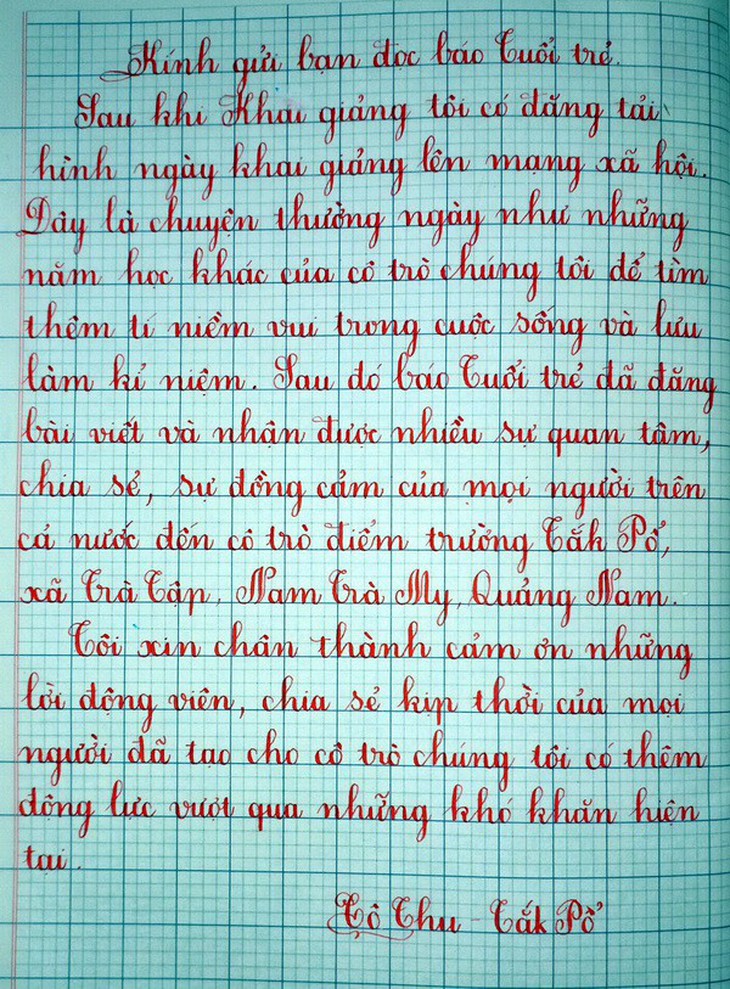 Kính gửi bạn đọc báo Tuổi trẻ.
Sau khi Khai giảng tôi có đăng tải
hình ngày khai giảng lên mạng xã hội.
Đây là chuyện thường ngày như những
năm học khác của cô trò chúng tôi để tìm
thêm tí niềm vui trong cuộc sống và lưu
làm kỉ niệm. Sau đó báo Tuổi trẻ đã đăng
bài viết và nhận được nhiều sự quan tâm,
chia sẻ, sự đồng cảm của mọi người trên
cả nước đến cô trò điểm trường Tắk Pổ,
xã Trà Tập, Nam Trà My, Quảng Nam.
Tôi xin chân thành cảm ơn những
lời động viên, chia sẻ kịp thời của mọi
người đã tạo cho cô trò chúng tôi có thêm
động lực vượt qua những khó khăn hiện
tại.
Cô Thu - Tắk Pổ